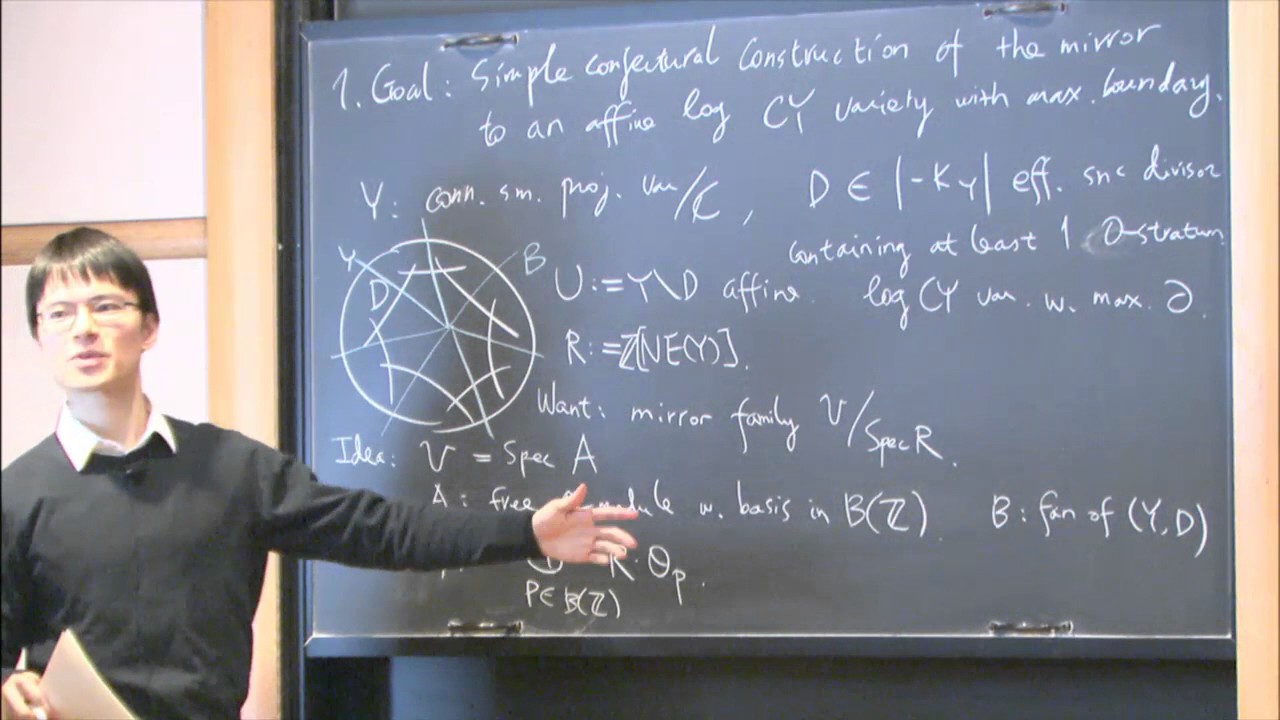 1. Goal: Simple conjectural construction of the mirror
to an affine log CY variety with max. boundary.
Y: conn. sm. proj. var/ℂ, D ∈ |-K_Y| eff. snc divisor
containing at least 1 0-stratum
Y D B
U := Y\D affine log CY var. w. max. ∂.
R := ℤ[NE(Y)].
Want: mirror family V/Spec R.
Idea: V = Spec A
A: free module w. basis in B(ℤ) B: fan of (Y, D)
R·θ_p.
P∈B(ℤ)